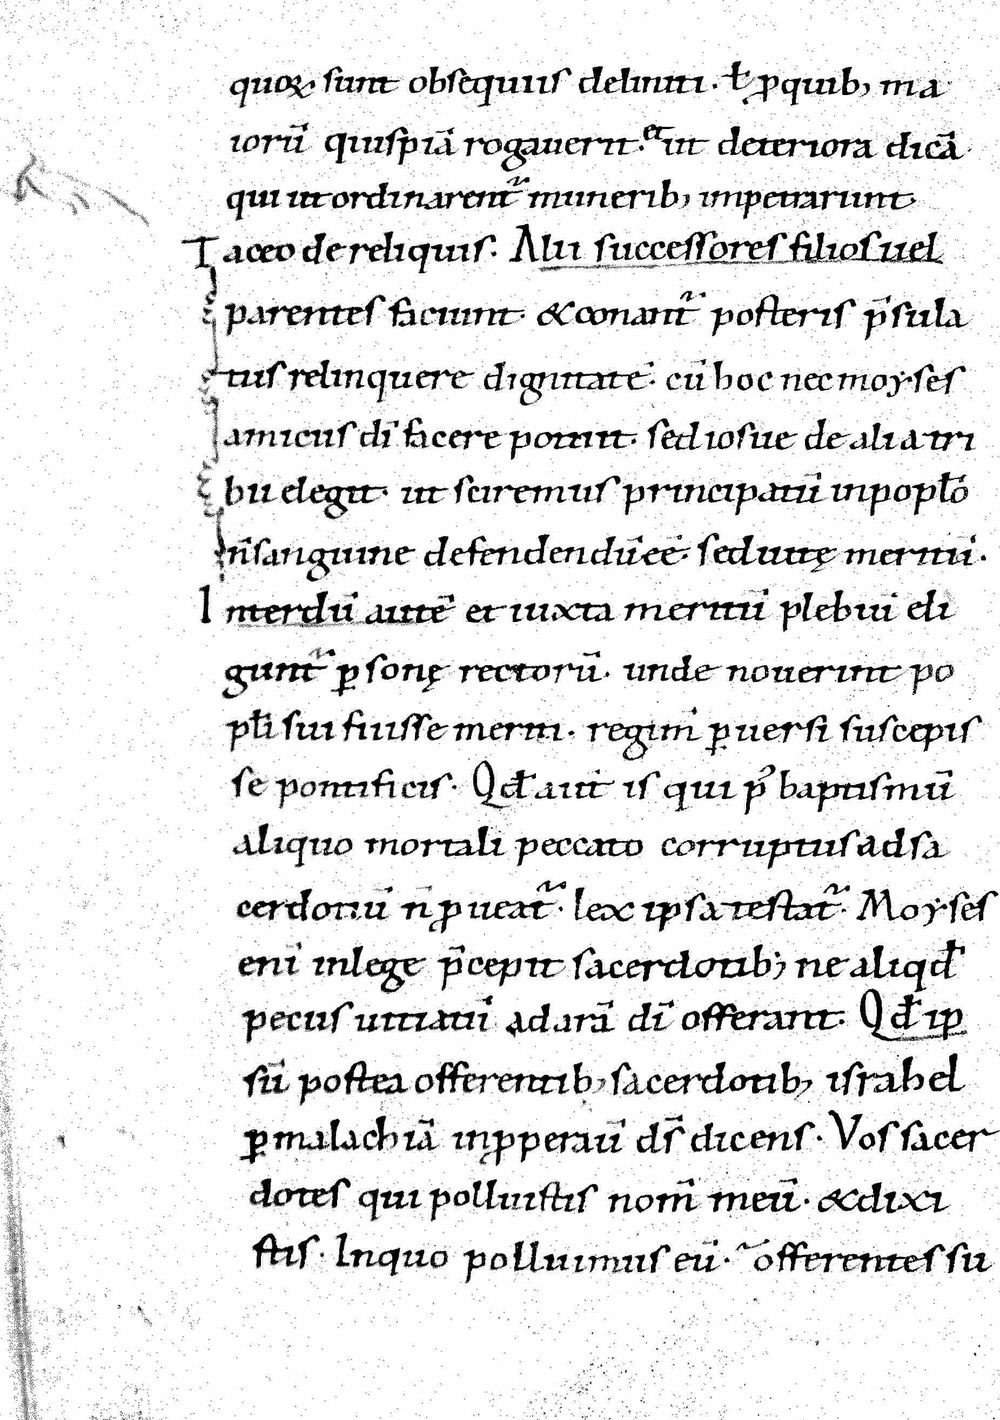 quoꝝ sunt obsequiis deliniti· ł ꝓ quib; ma
iorū quispiā rogauerit· et ut deteriora dicā
qui ut ordinarent᷑ munerib; impetrarunt·
Taceo de reliquis. Alii successores filios uel
parentes faciunt· & conant᷑ posteris p̄sula
tus relinquere dignitatē· cū hoc nec moyses
amicus dī facere potuit· sed iosue de alia tri
bu elegit· ut sciremus principatū in popło
n̄ sanguine defendendū eē· sed uitę meritū·
Interdū autē et iuxta meritū plebiū eli
gunt᷑ ꝑsonę rectorū· unde nouerint po
płi sui fuisse meriti· regim̄ ꝑuersi suscepis
se pontificis· Qđ aūt is qui p᷒ baptismū
aliquo mortali peccato corruptus ad sa
cerdotiū n̄ ꝓueat᷑· lex ipsa testat᷑· Moyses
enī in lege p̄cepit sacerdotib; ne aliqđ
pecus uitiatū ad arā dī offerant· Qđ ip
sū postea offerentib; sacerdotib; israhel
ꝑ malachiā inꝓperauī ds̄ dicens· Vos sacer
dotes qui polluistis nom̄ meū· & dixi
stis· In quo polluimus eū· offerentes su